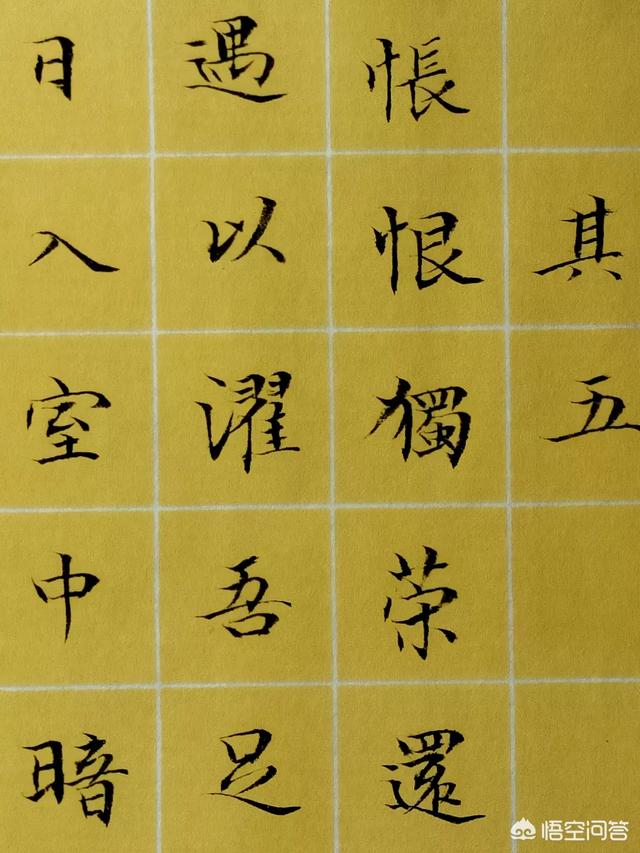 其五
帳恨獨荣還
遇以濯吾足
日入室中暗
悟空问答